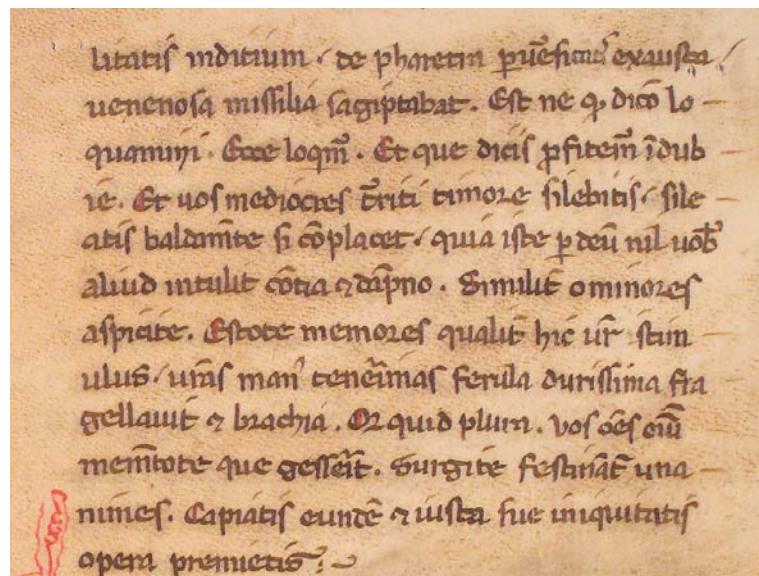 litatis inditium. de pharetra ꝑuẽficiũ exausta
uenenosa missilia sagiptabat. Est ne qͥ dicõ lo
quamini. Ecce loqm̃. Et que dicis ꝓfitem̃ ĩdub
ie. Et uos mediocres t̃riti timore silebitis. sile
atis baldam̃te si cõplacet. quia iste ꝑ deũ nil uob̾
aliud intulit cõtia ⁊ dãpno. Similit̃ o minores
aspicite. Estote memores qualit̃ hic ur̃ stim
ulus. ur̃as man᾽ tener̃imas ferula durissima fra
gellauit ⁊ brachia. Or quid plura. vos oẽs eiũ
mem̃tote que gesser̃it. Surgite festinãt̃ una
nimes. Capiatis eundẽ ⁊ iusta sue iniquitatis
opera premietis.